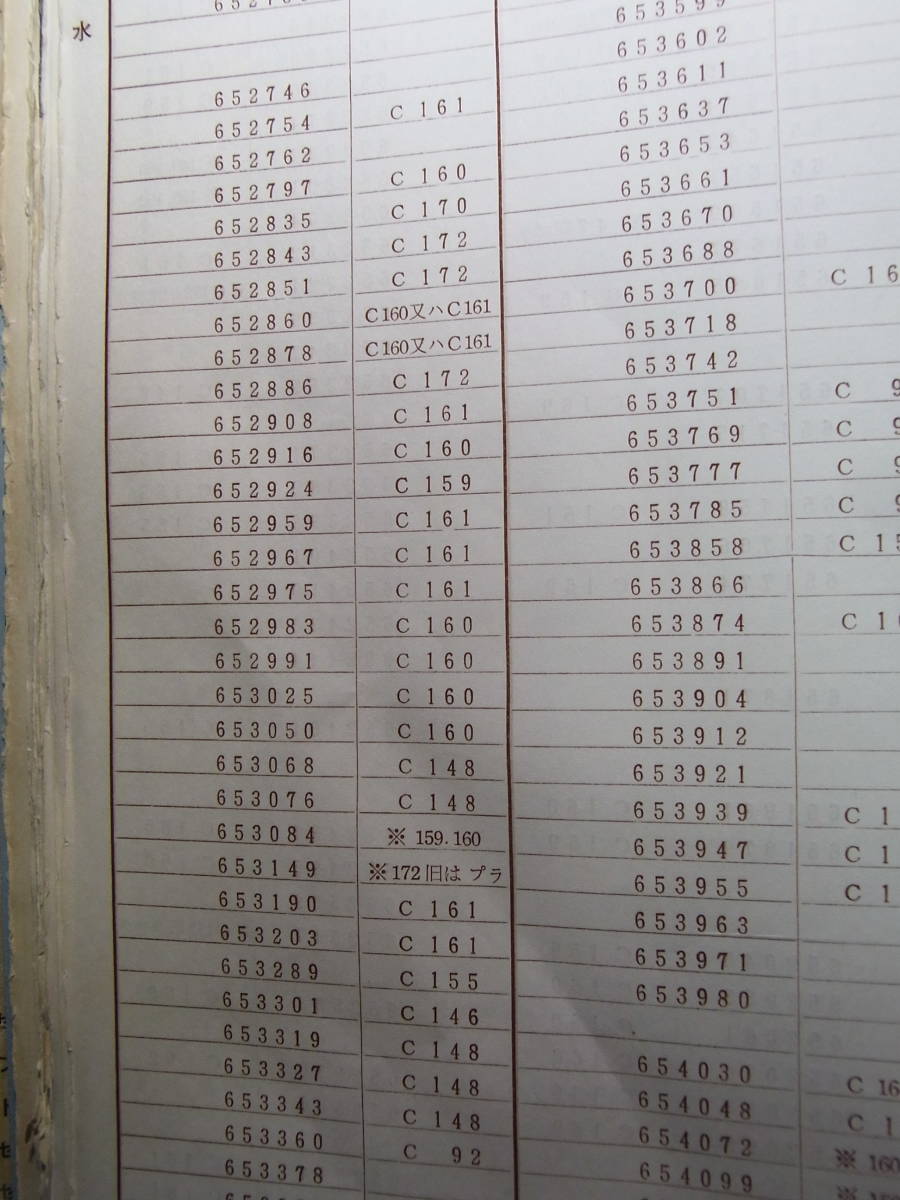 水
652746
652754 C 161
652762
652797 C 160
652835 C 170
652843 C 172
652851 C 172
652860 C160又ハC161
652878 C160又ハC161
652886 C 172
652908 C 161
652916 C 160
652924 C 159
652959 C 161
652967 C 161
652975 C 161
652983 C 160
652991 C 160
653025 C 160
653050 C 160
653068 C 148
653076 C 148
653084 ※ 159.160
653149 ※172旧は プラ
653190 C 161
653203 C 161
653289 C 155
653301 C 146
653319 C 148
653327 C 148
653343 C 148
653360 C 92
653378
653599
653602
653611
653637
653653
653661
653670
653688
653700 C 16
653718
653742
653751 C 9
653769 C 9
653777 C 9
653785 C 9
653858 C 15
653866
653874 C 1
653891
653904
653912
653921
653939 C 1
653947 C 1
653955 C 1
653963
653971
653980
654030 C 16
654048 C 1
654072 ※ 160
654099 ※